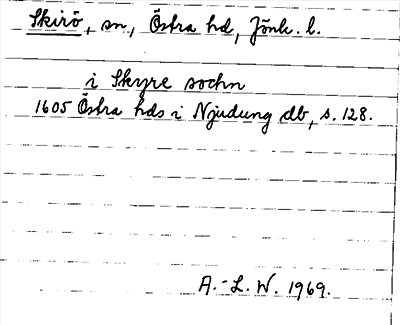 Skirö, sn, Östra hd, Jönk. l.
i Skyre sochn
1605 Östra hds i Njudung db, s. 128.
A.-L. W. 1969.